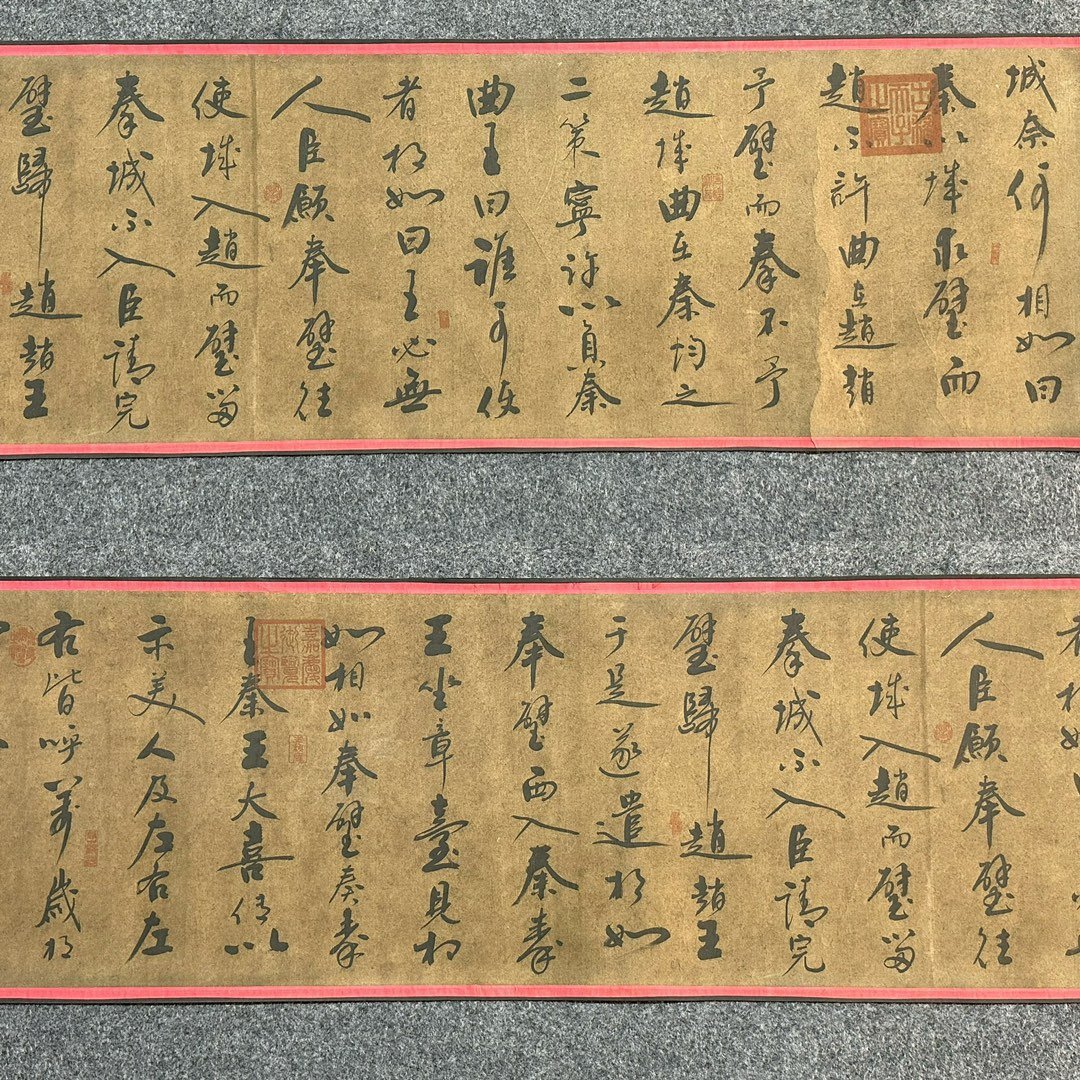 城奈何相如曰
秦以城求璧而
趙不許曲在趙趙
予璧而秦不予
趙城曲在秦均之
二策寧許以負秦
曲王曰誰可使
者相如曰王必無
人臣願奉璧往
使城入趙而璧留
秦城不入臣請完
璧歸趙趙王
古稀天子之寶
人臣願奉璧往
使城入趙而璧留
秦城不入臣請完
璧歸趙趙王
于是遂遣相如
奉璧西入秦秦
王坐章臺見相
如相如奉璧奏秦
王秦王大喜傳以
示美人及左右左
右皆呼萬歲相
嘉慶御覽之寶